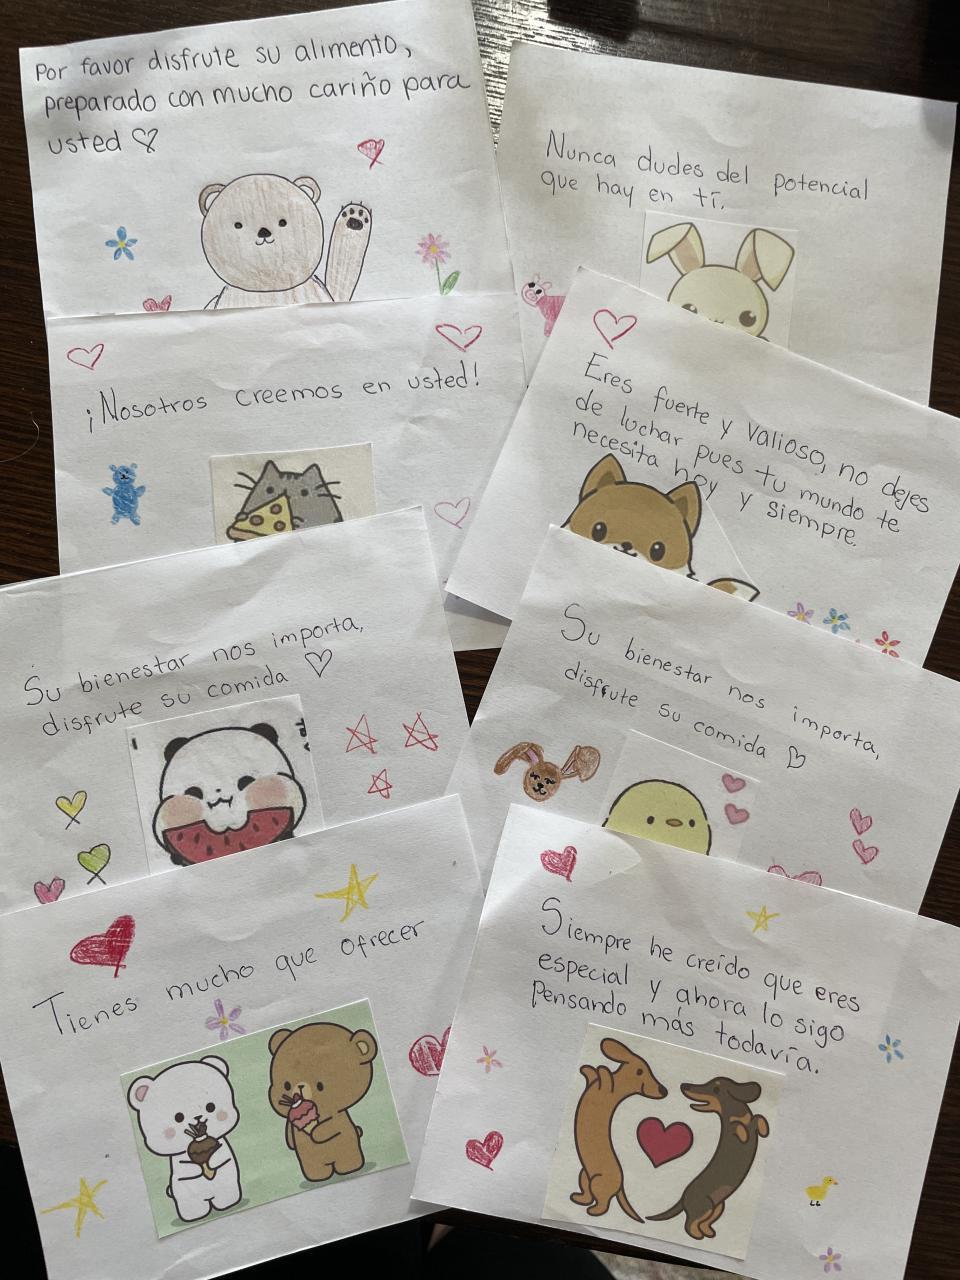 Por favor disfrute su alimento,
preparado con mucho cariño para
usted
Nunca dudes del potencial
que hay en tí.
¡Nosotros creemos en usted!
Eres fuerte y valioso, no dejes
de luchar pues tu mundo te
necesita hoy y siempre.
Su bienestar nos importa,
disfrute su comida
Su bienestar nos importa,
disfrute su comida
Tienes mucho que ofrecer
Siempre he creído que eres
especial y ahora lo sigo
Pensando más todavía.